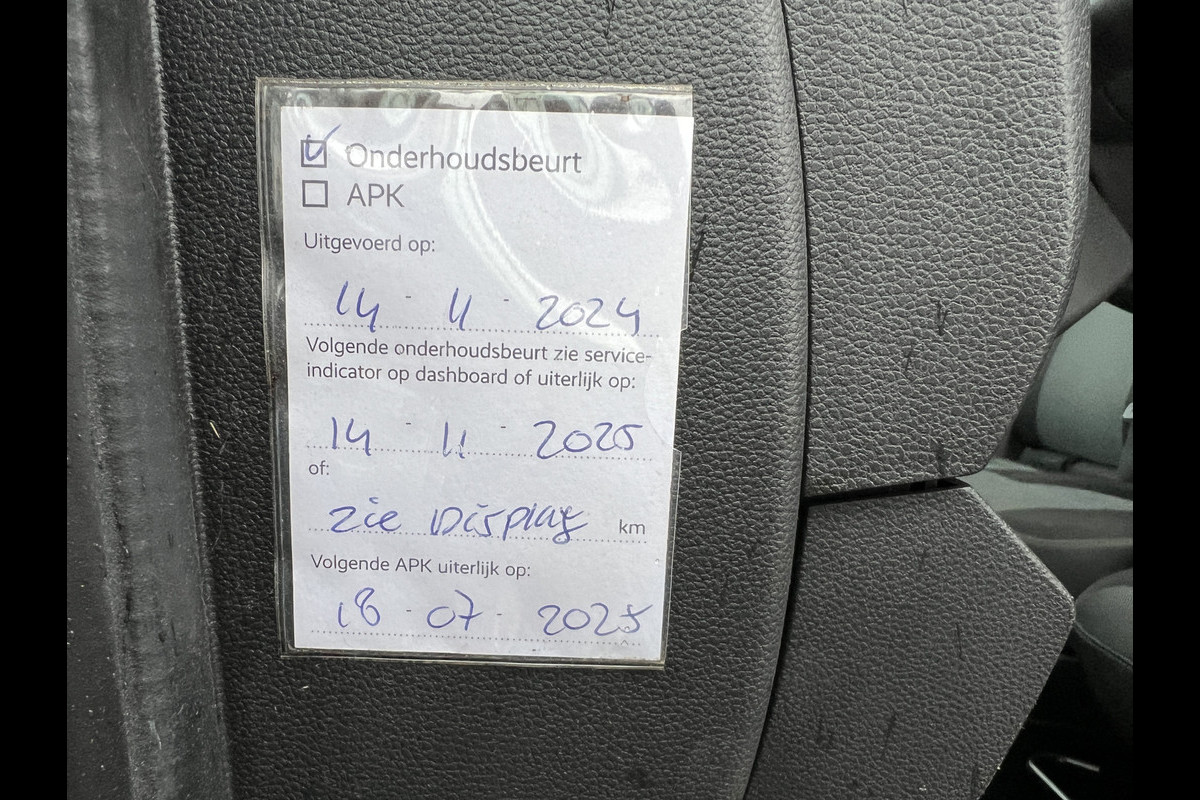 Onderhoudsbeurt
APK
Uitgevoerd op:
14 - 11 - 2024
Volgende onderhoudsbeurt zie service-
indicator op dashboard of uiterlijk op:
14 - 11 - 2025
of:
zie Display km
Volgende APK uiterlijk op:
18 - 07 - 2025